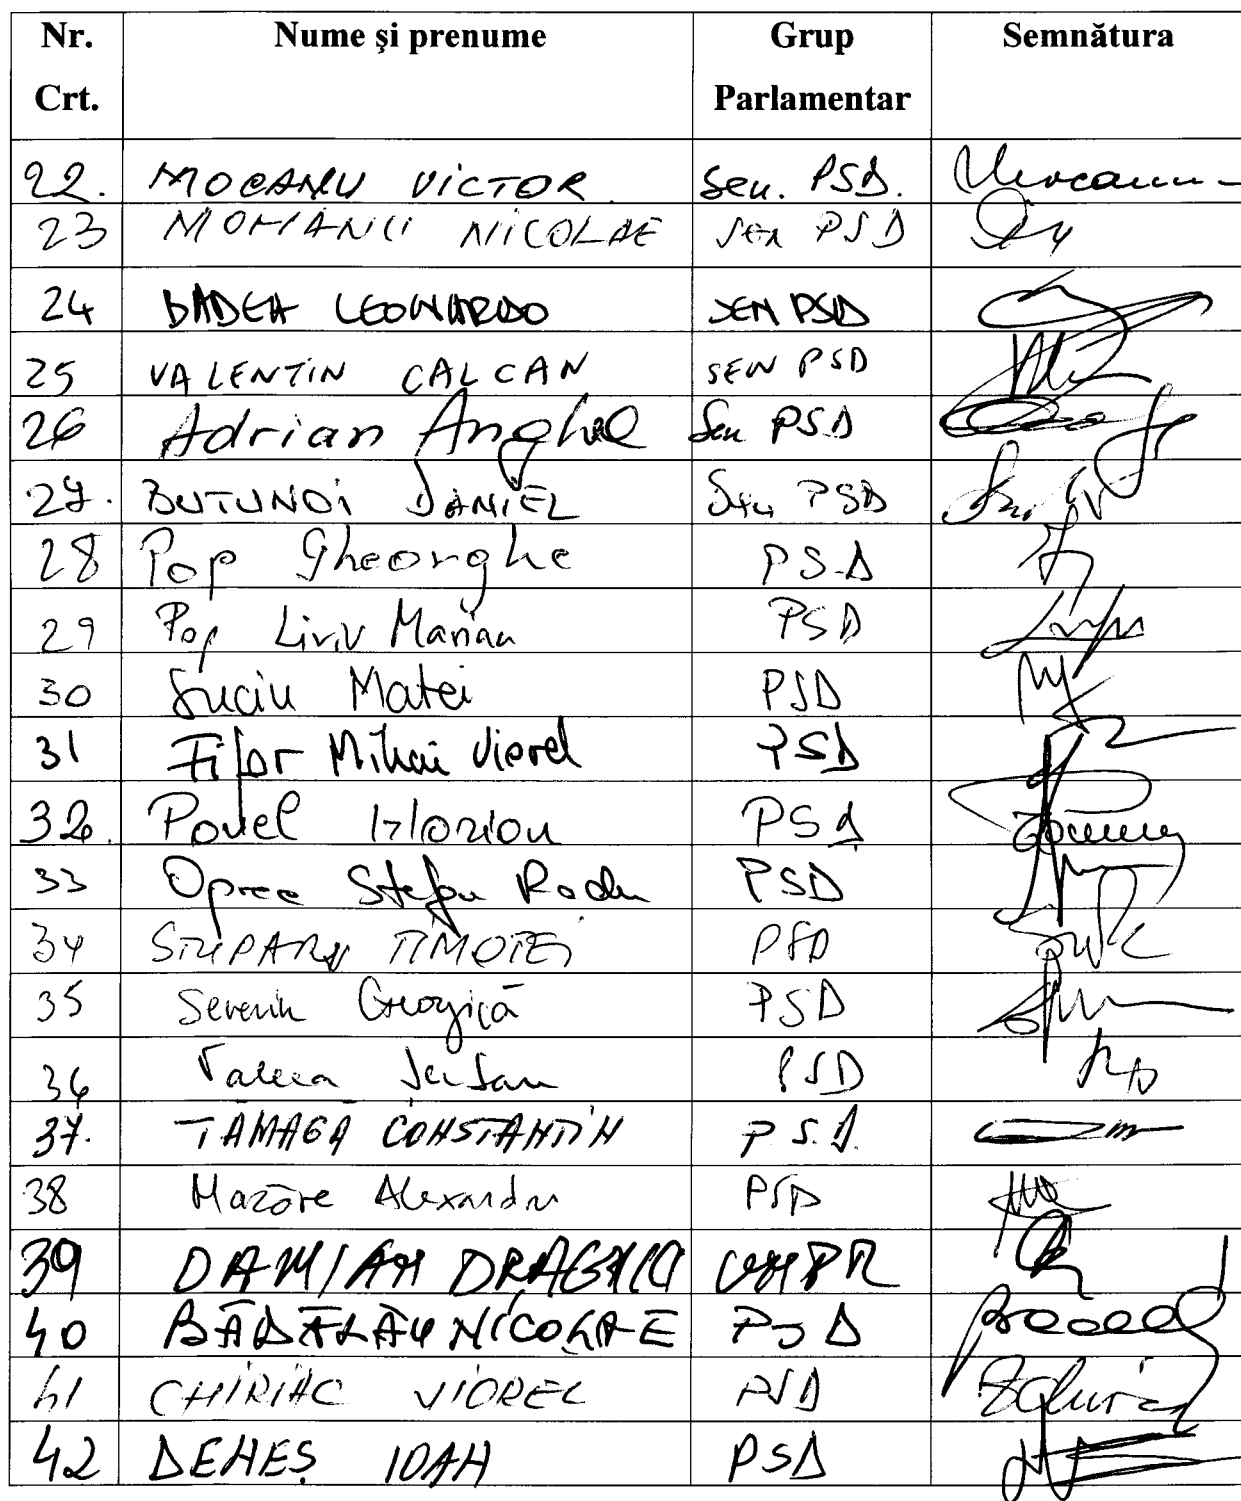 Nr. Crt. Nume şi prenume Grup Parlamentar Semnătura
22. MOCANU VICTOR Sen. PSD.
23 MOHANU NICOLAE SEN PSD
24 BADEA LEONARDO SEN PSD
25 VALENTIN CALCAN SEN PSD
26 Adrian Anghel Sen PSD
27. BUTUNOI DANIEL Sen PSD
28 Pop Gheorghe PSD
29 Pop Liviu Marian PSD
30 Suciu Matei PSD
31 Fifor Mihai Viorel PSD
32. Pavel Marian PSD
33 Oprea Stefan Radu PSD
34 STUPARU TIMOTEI PSD
35 Severin Georgică PSD
36 PSD
37. TAMAGA CONSTANTIN P S.D.
38 Mazăre Alexandru PSD
39 DAMIAN DRAGHICI UNPR
40 BĂDĂLĂU NICOLAE PSD
41 CHIRIAC VIOREL PSD
42 DENEŞ IOAN PSD